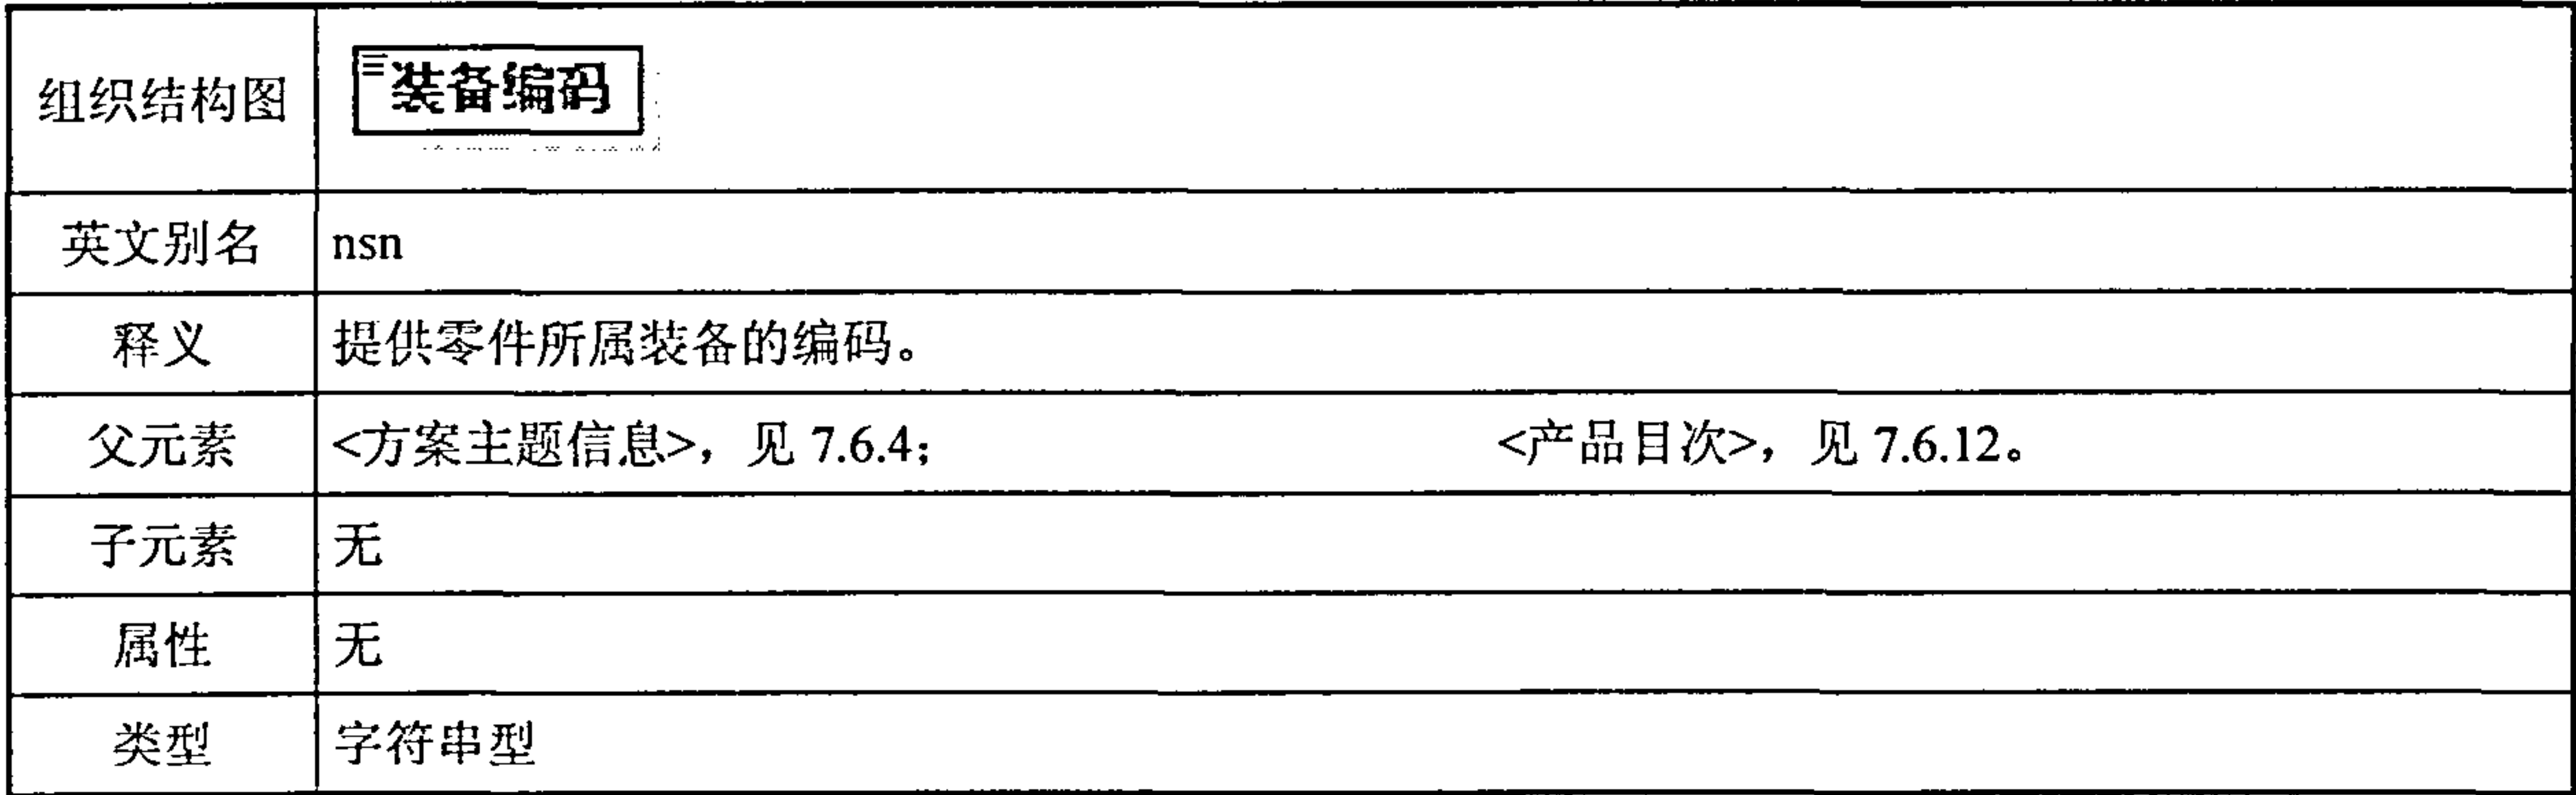 组织结构图 装备编码
英文别名 nsn
释义 提供零件所属装备的编码。
父元素 <方案主题信息>，见 7.6.4； <产品目次>，见 7.6.12。
子元素 无
属性 无
类型 字符串型